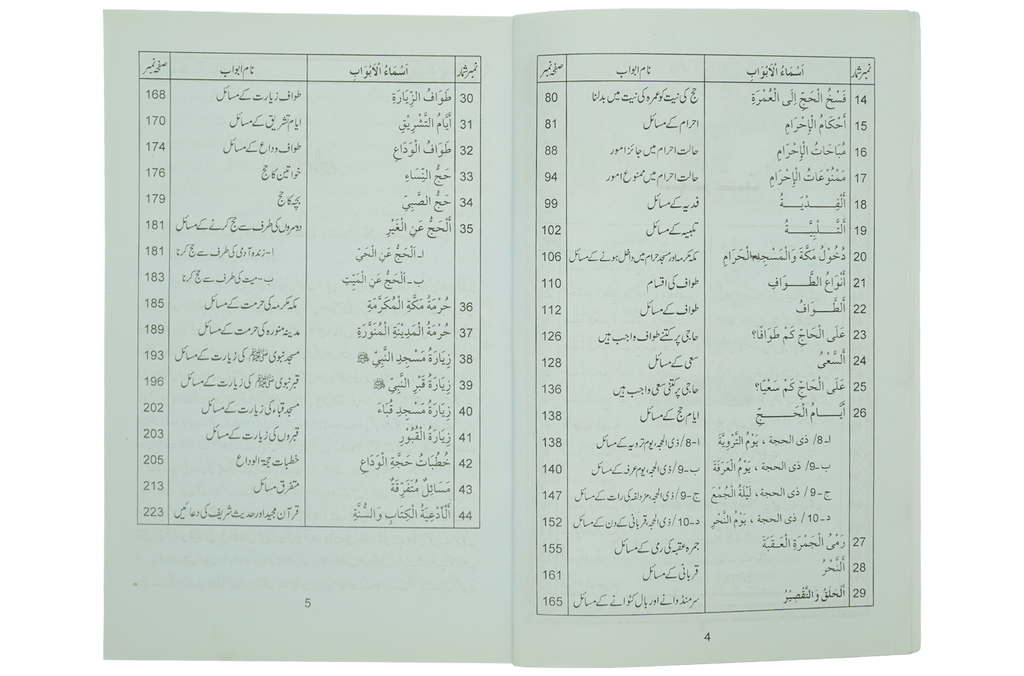 نمبر شمار اَسْمَاءُ الْاَبْوَابِ نام ابواب صفحہ نمبر
14 فَسْخُ الْحَجِّ اِلَى الْعُمْرَةِ حج کی نیت کو عمرہ کی نیت میں بدلنا 80
15 أَحْكَامُ الْإِحْرَامِ احرام کے مسائل 81
16 مُبَاحَاتُ الْإِحْرَامِ حالت احرام میں جائز امور 88
17 مَمْنُوعَاتُ الْإِحْرَامِ حالت احرام میں ممنوع امور 94
18 أَلْفِـــدْيَـــةُ فدیہ کے مسائل 99
19 أَلتَّـــلْبِيَـــةُ تلبیہ کے مسائل 102
20 دُخُوْلُ مَكَّةَ وَالْمَسْجِدِ الْحَرَامِ مکہ مکرمہ اور مسجد حرام میں داخل ہونے کے مسائل 106
21 أَنْوَاعُ الطَّـــوَافِ طواف کی اقسام 110
22 أَلطَّـــوَافُ طواف کے مسائل 112
23 عَلَى الْحَاجِّ كَمْ طَوَافًا؟ حاجی پر کتنے طواف واجب ہیں 126
24 أَلسَّعْىُ سعی کے مسائل 128
25 عَلَى الْحَاجِّ كَمْ سَعْيًا؟ حاجی پر کتنی سعی واجب ہیں 136
26 أَيَّـــامُ الْحَـــجِّ ایام حج کے مسائل 138
ا-8/ ذى الحجة ، يَوْمُ التَّرْوِيَّةَ ا-8/ ذی الحجہ، یوم ترویہ کے مسائل 138
ب-9/ ذى الحجة ، يَوْمُ الْعَرَفَةَ ب-9/ ذی الحجہ، یوم عرفہ کے مسائل 140
ج-9/ ذى الحجة ، لَيْلَةُ الْجُمَعَ ج-9/ ذی الحجہ، مزدلفہ کی رات کے مسائل 147
د-10/ ذى الحجة ، يَوْمُ النَّحْرِ د-10/ ذی الحجہ، قربانی کے دن کے مسائل 152
27 رَمْىُ الْجَمْرَةِ الْعَقَبَةَ جمرہ عقبہ کی رمی کے مسائل 155
28 أَلنَّحْرُ قربانی کے مسائل 161
29 أَلْحَلْقُ وَالتَّقْصِيْرُ سر منڈوانے اور بال کٹوانے کے مسائل 165
4
نمبر شمار اَسْمَاءُ الْاَبْوَابِ نام ابواب صفحہ نمبر
30 طَوَافُ الزِّيَارَةِ طواف زیارت کے مسائل 168
31 أَيَّامُ التَّشْرِيْقِ ایام تشریق کے مسائل 170
32 طَوَافُ الْوَدَاعِ طواف وداع کے مسائل 174
33 حَجُّ النِّسَاءِ خواتین کا حج 176
34 حَجُّ الصَّبِيِّ بچہ کا حج 179
35 أَلْحَجُّ عَنِ الْغَيْرِ دوسروں کی طرف سے حج کرنے کے مسائل 181
ا-أَلْحَجُّ عَنِ الْحَيِّ ا-زندہ آدمی کی طرف سے حج کرنا 181
ب-أَلْحَجُّ عَنِ الْمَيِّتِ ب-میت کی طرف سے حج کرنا 183
36 حُرْمَةُ مَكَّةَ الْمُكَرَّمَةِ مکہ مکرمہ کی حرمت کے مسائل 185
37 حُرْمَةُ الْمَدِيْنَةِ الْمُنَوَّرَةِ مدینہ منورہ کی حرمت کے مسائل 189
38 زِيَارَةُ مَسْجِدِ النَّبِيِّ ﷺ مسجد نبوی ﷺ کی زیارت کے مسائل 193
39 زِيَارَةُ قَبْرِ النَّبِيِّ ﷺ قبر نبوی ﷺ کی زیارت کے مسائل 196
40 زِيَارَةُ مَسْجِدِ قُبَاءَ مسجد قباء کی زیارت کے مسائل 202
41 زِيَارَةُ الْقُبُوْرِ قبروں کی زیارت کے مسائل 203
42 خُطْبَاتُ حَجَّةِ الْوَدَاعِ خطبات حجۃ الوداع 205
43 مَسَائِلُ مُتَفَرِّقَةٌ متفرق مسائل 213
44 أَلْأَدْعِيَةُ الْكِتَابِ وَالسُّنَّةِ قرآن مجید اور حدیث شریف کی دعائیں 223
5